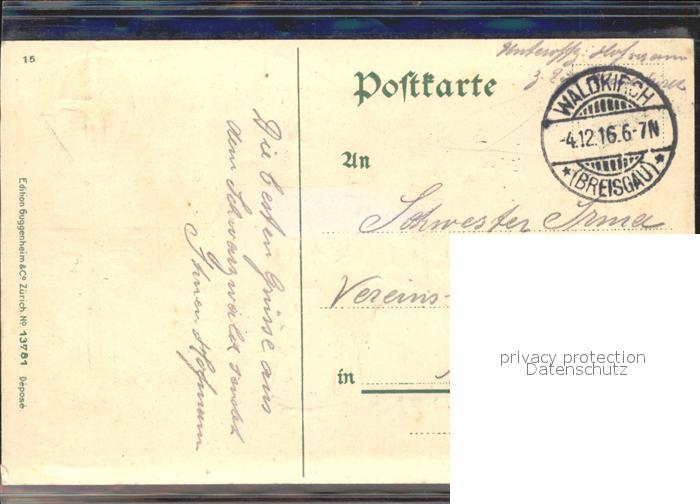 15
Unteroffz. Hofmann
Postkarte
WALDKIRCH
-4.12.16.6-7N
*(BREISGAU)*
An
Schwester Irma
Vereins-
in
privacy protection
Datenschutz
Die besten Grüsse aus
dem Schwarzwald sendet
Ihnen Hofmann
Edition Guggenheim & Co Zürich. No 13781 Déposé.